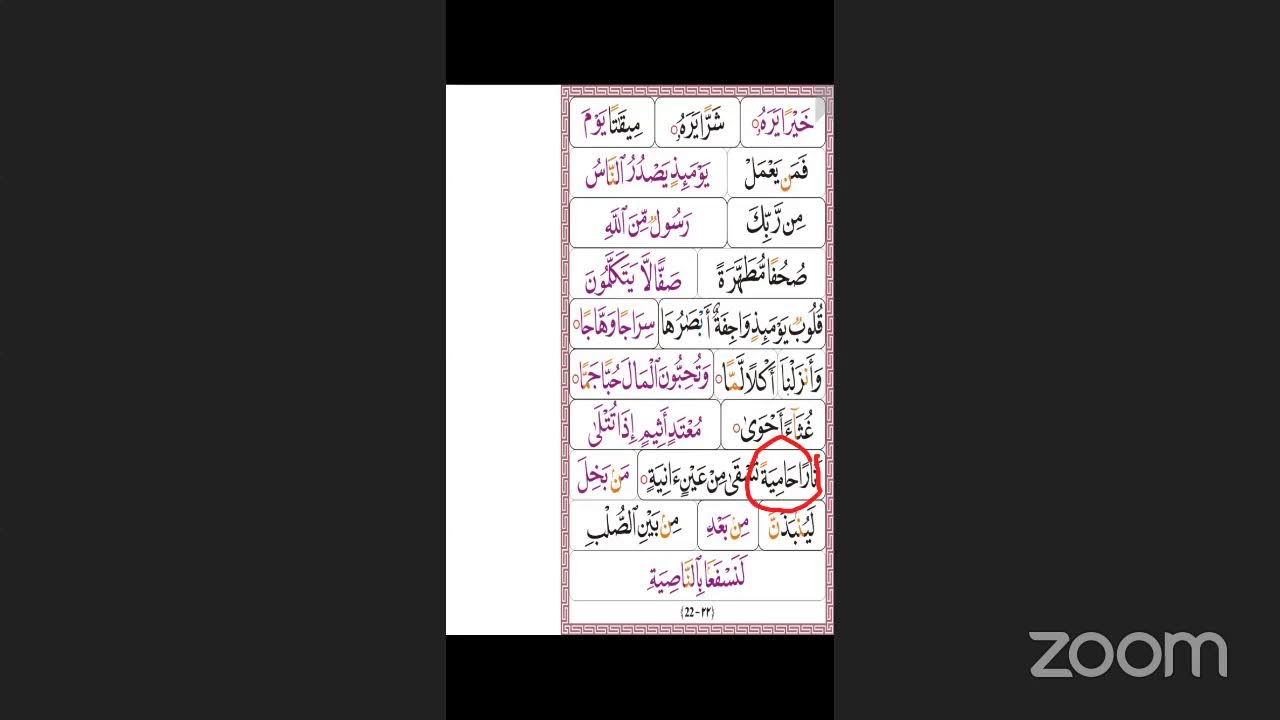 خَيْرًا يَرَهُۥ شَرًّا يَرَهُۥ مِيقَٰتًا يَوْمَ
فَمَن يَعْمَلْ يَوْمَئِذٍ يَصْدُرُ ٱلنَّاسُ
مِن رَّبِّكَ رَسُولٌ مِّنَ ٱللَّهِ
صُحُفًا مُّطَهَّرَةً صَفًّا لَّا يَتَكَلَّمُونَ
قُلُوبٌ يَوْمَئِذٍ وَاجِفَةٌ أَبْصَٰرُهَا سِرَاجًا وَهَّاجًا
وَأَنزَلْنَا أَكْلًا لَّمًّا وَتُحِبُّونَ ٱلْمَالَ حُبًّا جَمًّا
غُثَآءً أَحْوَىٰ مُعْتَدٍ أَثِيمٍ إِذَا تُتْلَىٰ
نَارًا حَامِيَةً تُسْقَىٰ مِنْ عَيْنٍ ءَانِيَةٍ مَنۢ بَخِلَ
لَيُنۢبَذَنَّ مِنۢ بَعْدِ مِنۢ بَيْنِ ٱلصُّلْبِ
لَنَسْفَعًۢا بِٱلنَّاصِيَةِ
{22 - ٢٢}
zoom